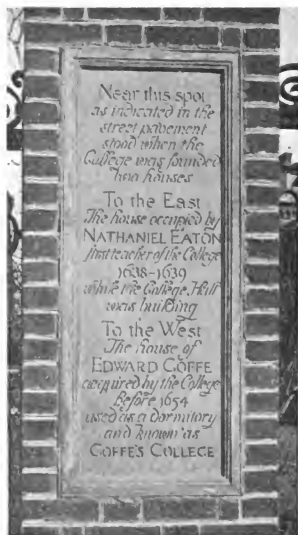 Near this spot
as indicated in the
street pavement
stood when the
College was founded
two houses
To the East
The house occupied by
NATHANIEL EATON
first teacher of the College
1638-1639
while the College Hall
was building
To the West
The house of
EDWARD GOFFE
acquired by the College
Before 1654
used as a dormitory
and known as
GOFFE'S COLLEGE